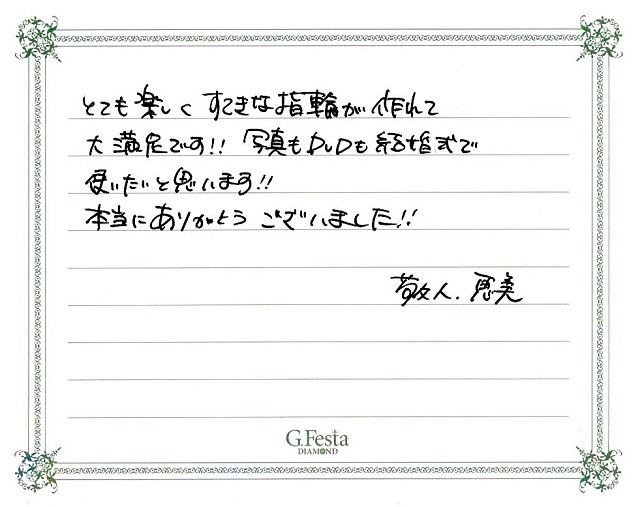 とても楽しく すてきな指輪が 作れて
大満足です!! 写真もDVDも結婚式で
使いたいと思います!!
本当にありがとう ございました!!
敬人. 恵美
G.Festa
DIAMOND